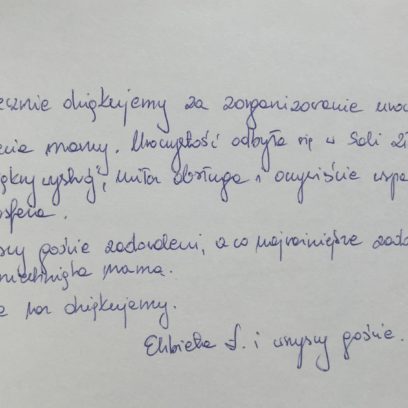 ecznie dziękujemy za zorganizowanie uroc
enia mamy. Uroczystość odbyła się w Sali 2
ękny wystrój, miła obsługa i oczywiście wspa
osfera.
scy goście zadowoleni, a co najważniejsze zado
miechnięta mama.
e raz dziękujemy.
Elżbieta S. i wszyscy goście.